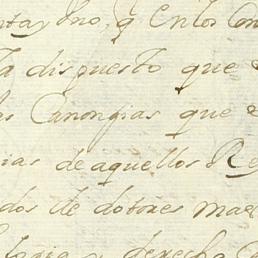 q en los Con
ta dispuesto que e
os Canongias que e
ias de aquellos Re
dos de dotores mae
logia y derecho C